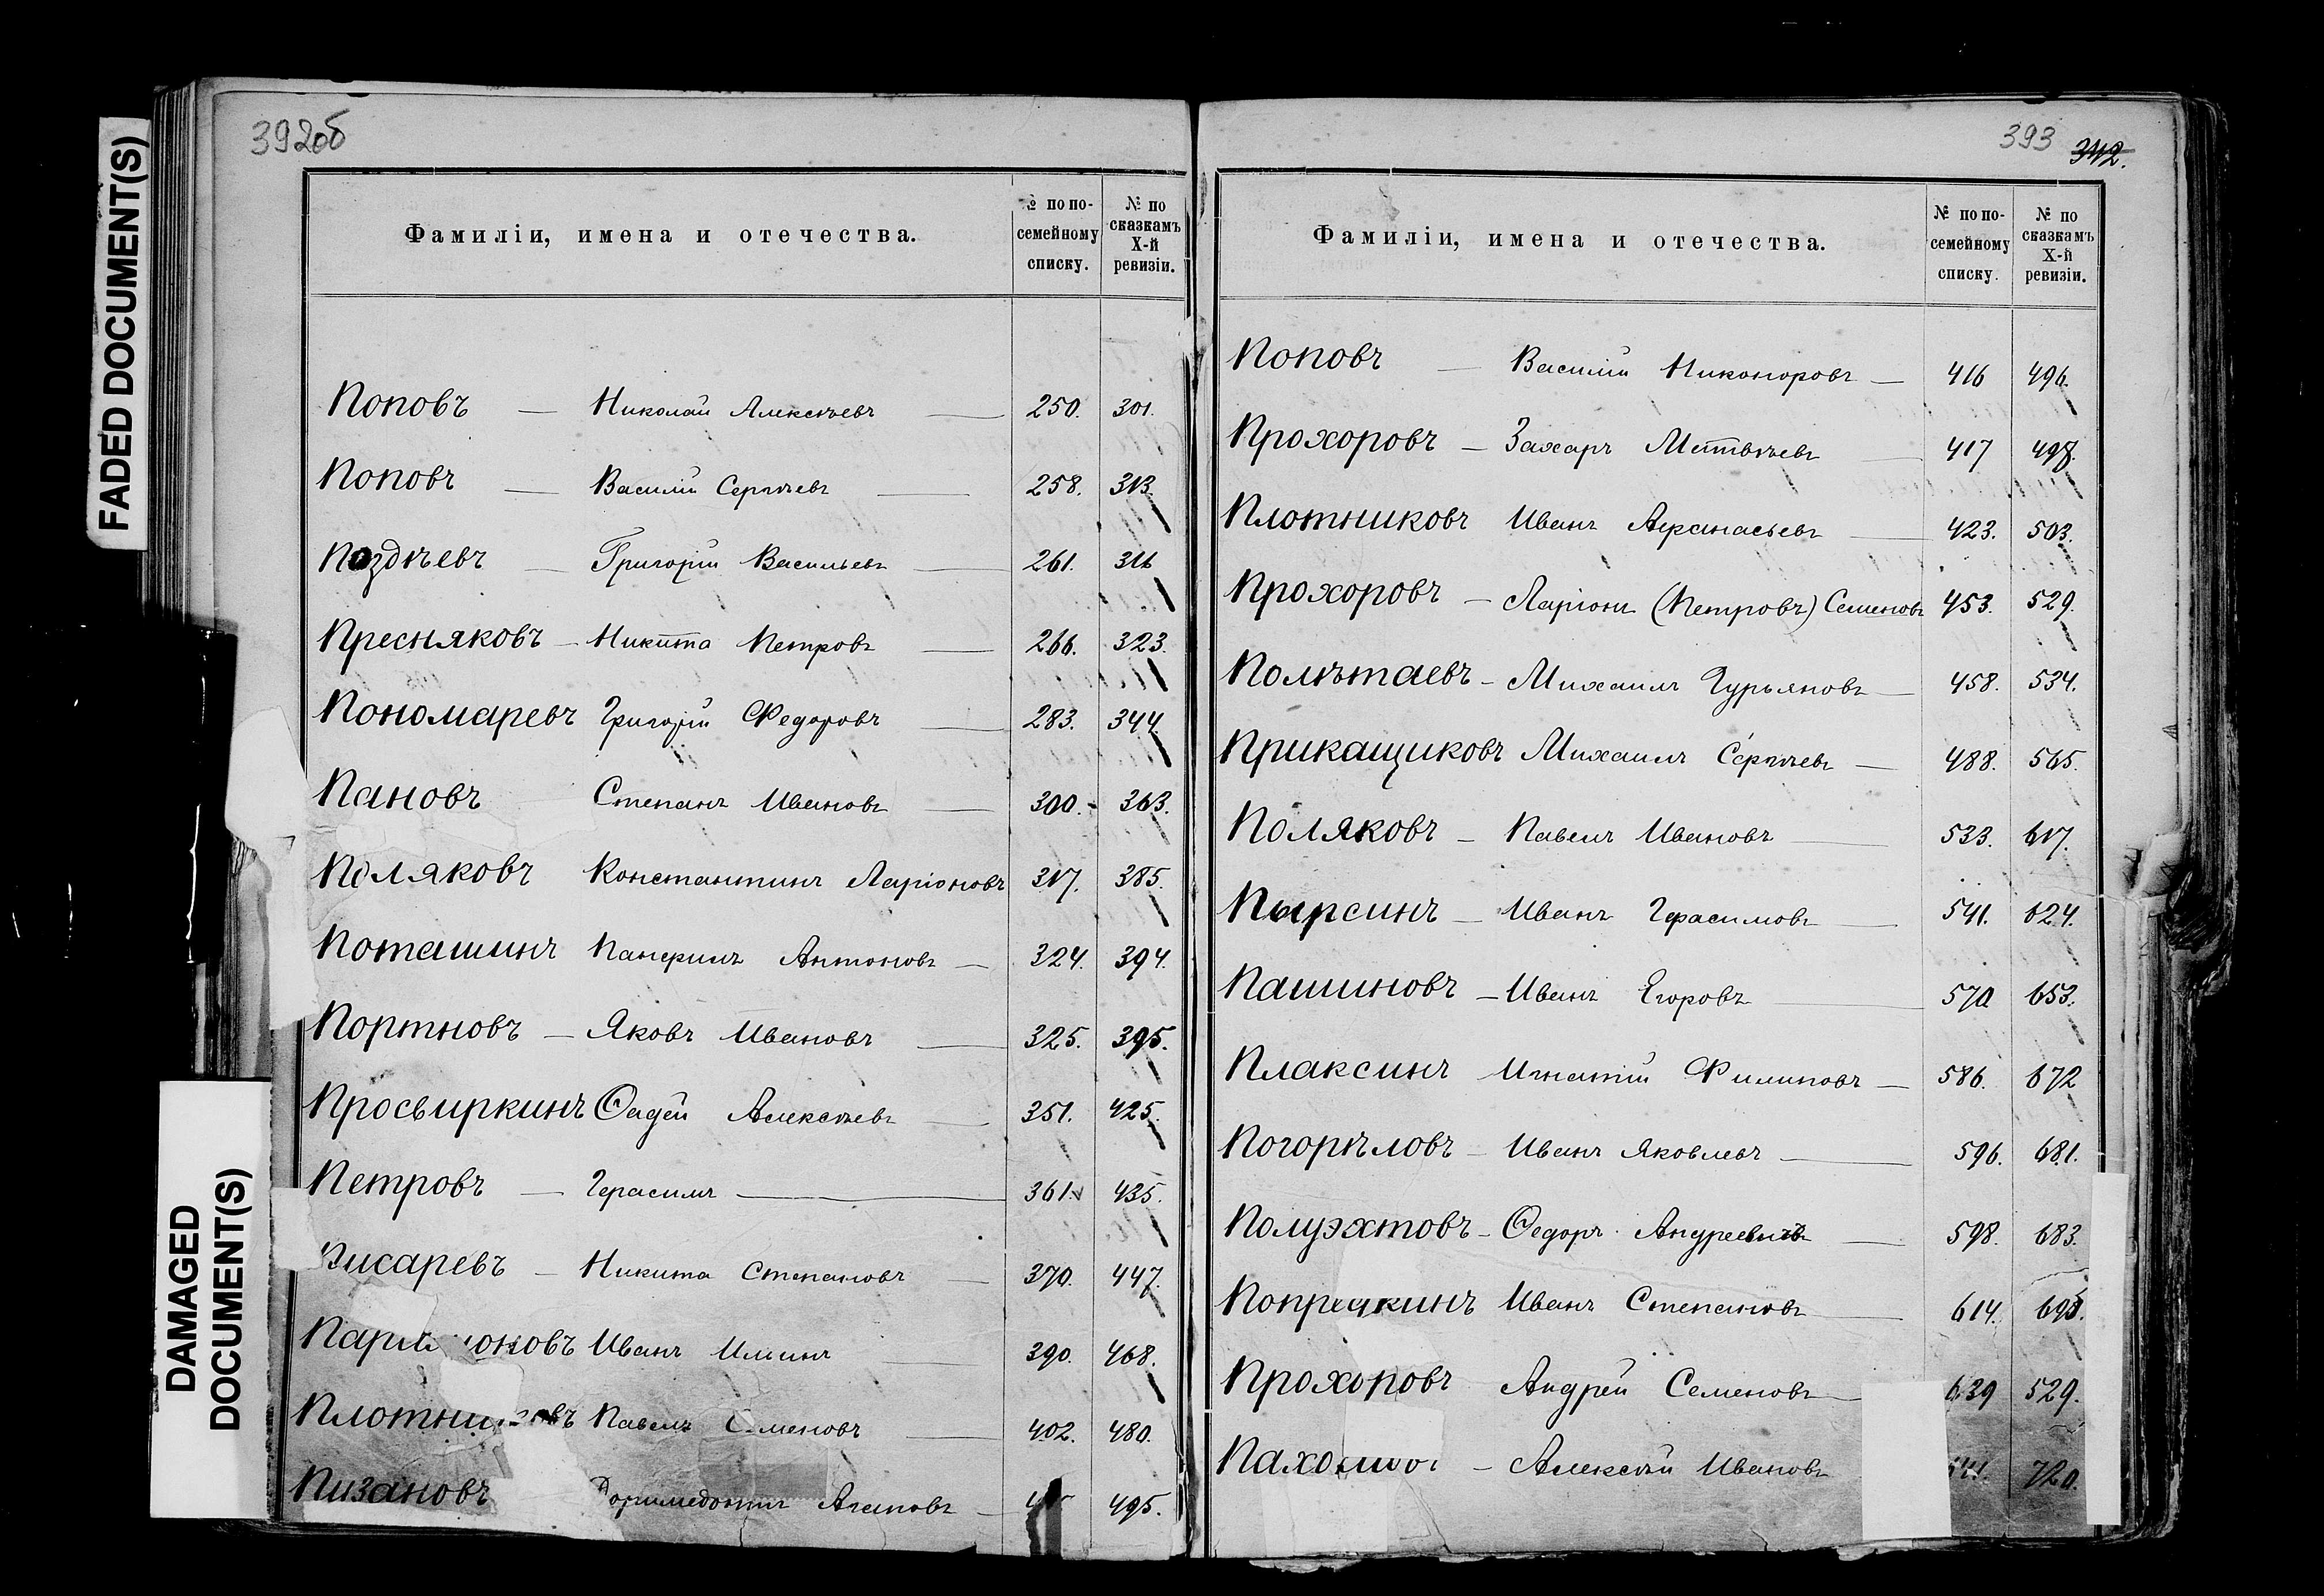 FADED DOCUMENT(S)
DAMAGED
DOCUMENT(S)
392об
Фамиліи, имена и отечества.
№ по по-
семейному
списку.
№ по
сказкамъ
X-й
ревизіи.
Поповъ — Николай Алексѣевъ — 250. 301.
Поповъ — Василій Сергѣевъ — 258. 313.
Поздѣевъ — Григорій Васильевъ — 261. 316
Пресняковъ — Никита Петровъ — 266. 323.
Пономаревъ Григорій Федоровъ — 283. 344.
Пановъ Степанъ Ивановъ — 300. 363.
Поляковъ Константинъ Ларіоновъ 317. 385.
Поташинъ Панфилъ Антоновъ — 324. 394.
Портновъ — Яковъ Ивановъ — 325. 395.
Просвиркинъ Ѳадѣй Алексѣевъ — 351. 425.
Петровъ — Герасимъ — 361. 435.
Писаревъ — Никита Степановъ — 370. 447.
Иванъ Ильинъ — 390. 468.
Плотниковъ Павелъ Семеновъ — 402. 480.
Пизановъ Доримедонтъ Агаповъ — 495.
393 342.
Фамиліи, имена и отечества.
№ по по-
семейному
списку.
№ по
сказкамъ
X-й
ревизіи.
Поповъ — Василій Никоноровъ — 416 496.
Прохоровъ — Захаръ Матвѣевъ — 417 497.
Плотниковъ Иванъ Афанасьевъ — 423. 503.
Прохоровъ — Ларіонъ (Петровъ) Семеновъ 453. 529.
Полѣтаевъ — Михаилъ Гурьяновъ — 458. 534.
Прикащиковъ Михаилъ Сергѣевъ — 488. 565.
Поляковъ — Павелъ Ивановъ — 533. 617.
Пырсинъ — Иванъ Герасимовъ — 541. 624.
Пашиновъ — Иванъ Егоровъ — 570 653.
Плаксинъ Игнатій Филиповъ — 586. 672
Погорѣловъ — Иванъ Яковлевъ — 596. 681.
Полуэхтовъ — Ѳедоръ Андреевъ — 598. 683.
Иванъ Степановъ — 614.
Прохоровъ Андрей Семеновъ — 639 529.
— Алексѣй Ивановъ 720.